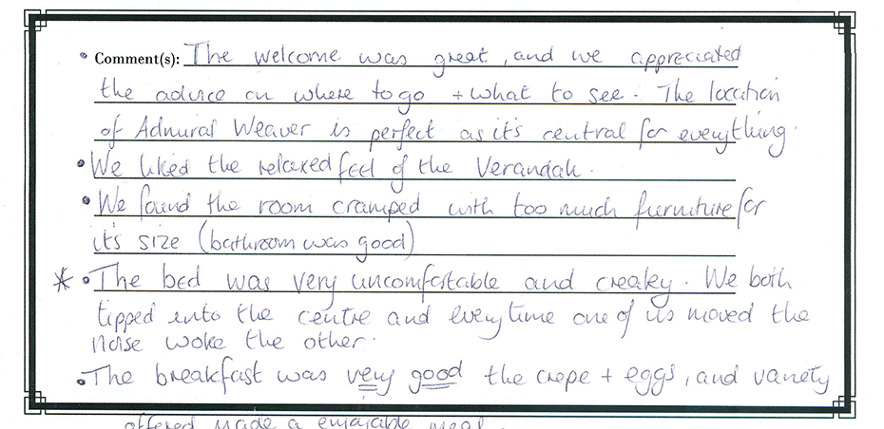 • Comment(s): The welcome was great, and we appreciated
the advice on where to go + what to see. The location
of Admiral Weaver is perfect as it's central for everything.
• We liked the relaxed feel of the Verandah.
• We found the room cramped with too much furniture for
it's size (bathroom was good)
* • The bed was very uncomfortable and creaky. We both
tipped into the centre and everytime one of us moved the
noise woke the other.
• The breakfast was very good the crepe + eggs, and variety
offered made a enjoyable meal.